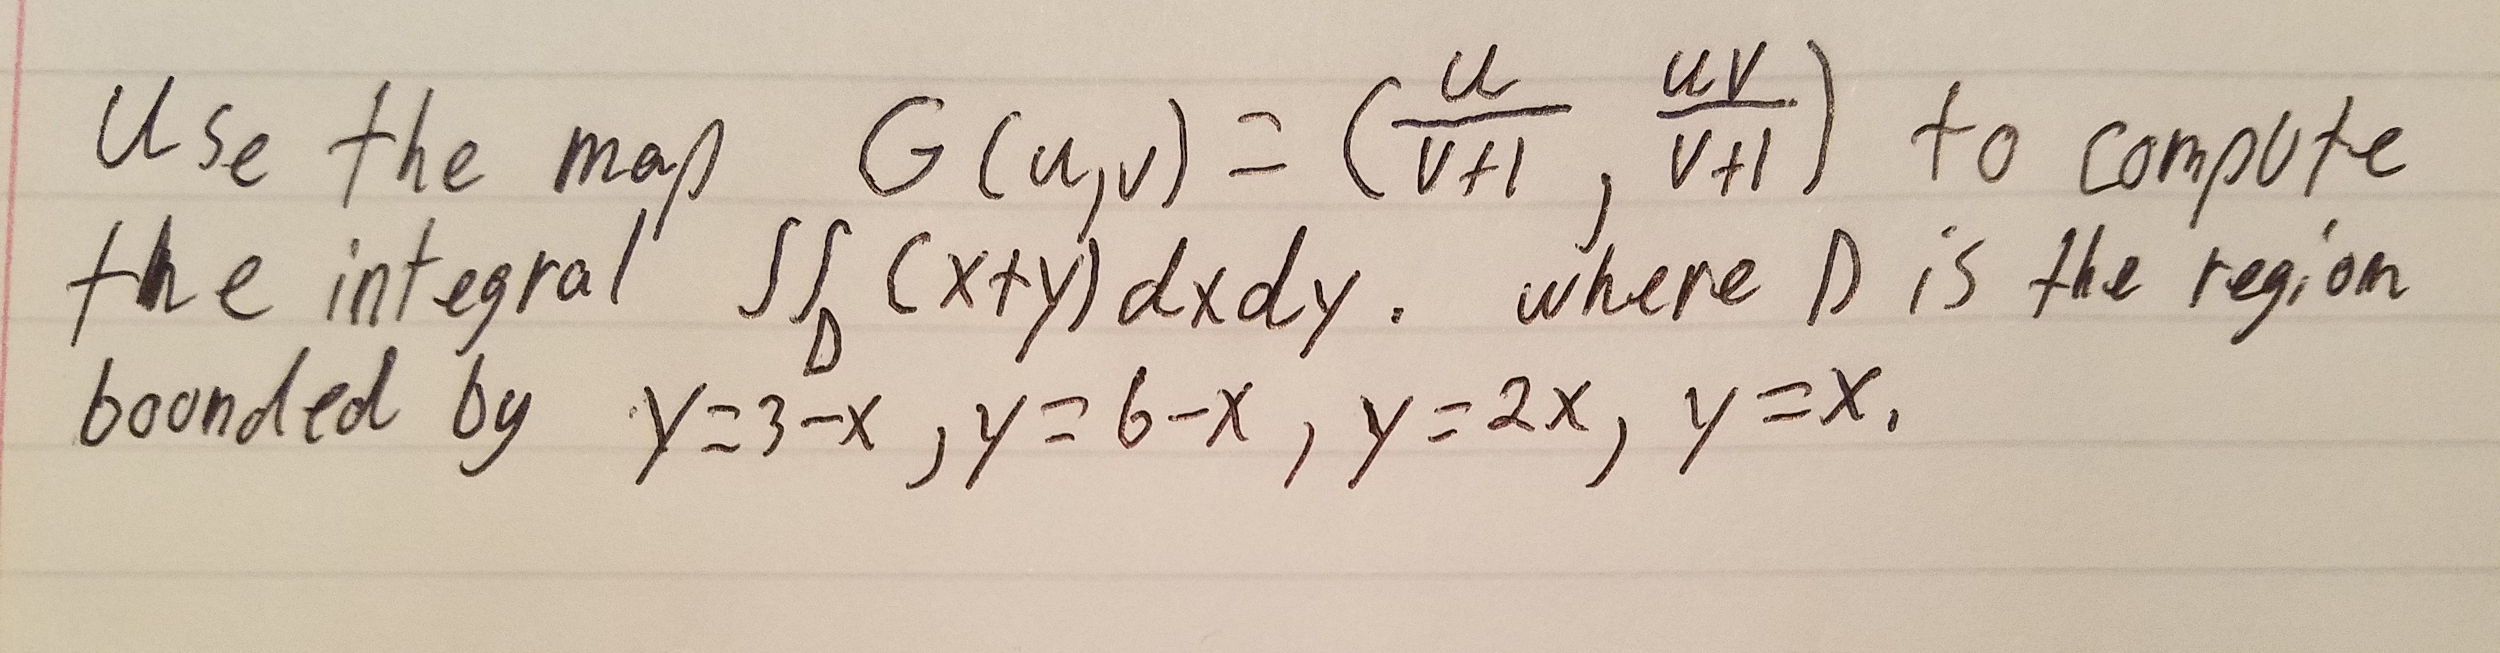 Use the map G(u,v) = (u/(v+1), uv/(v+1)) to compute
the integral ∬_D (x+y) dx dy. where D is the region
bounded by y=3-x, y=6-x, y=2x, y=x.